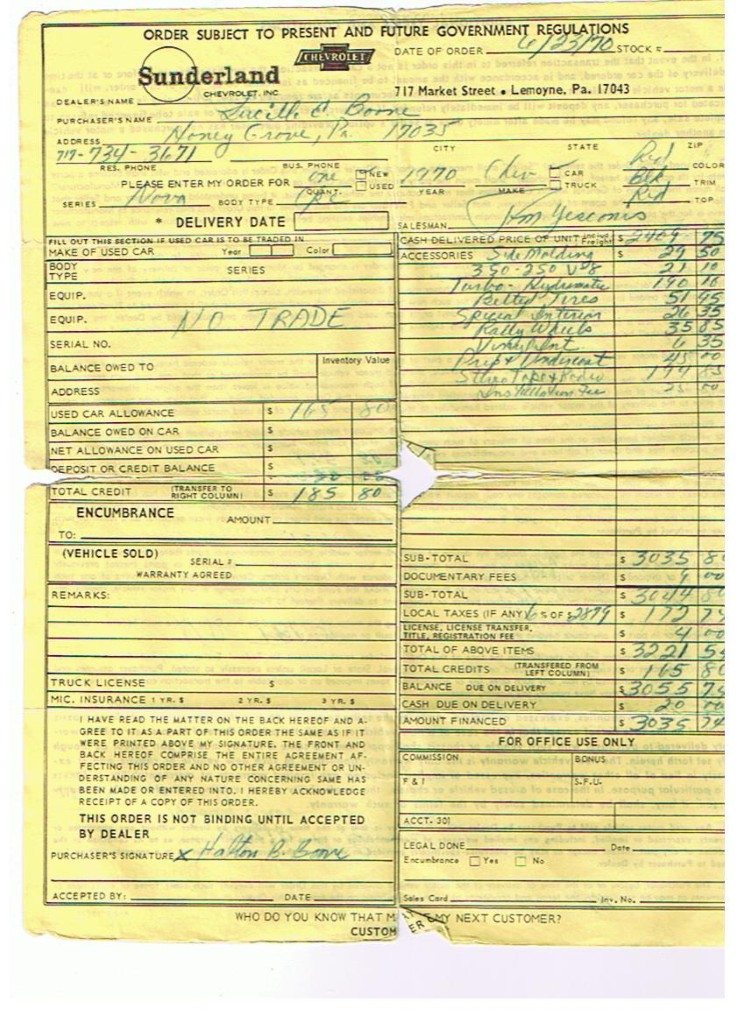 ORDER SUBJECT TO PRESENT AND FUTURE GOVERNMENT REGULATIONS
CHEVROLET
DATE OF ORDER 6/23/70 STOCK #
Sunderland
CHEVROLET, INC
717 Market Street • Lemoyne, Pa. 17043
DEALER'S NAME
PURCHASER'S NAME Lucille E. Boone
ADDRESS Honey Grove, Pa. 17035
CITY STATE ZIP
717-734-3671
RES. PHONE BUS. PHONE
PLEASE ENTER MY ORDER FOR one QUANT. NEW USED 1970 YEAR Chev MAKE CAR TRUCK Red COLOR
Blk TRIM
SERIES Nova BODY TYPE Cpe Red TOP
* DELIVERY DATE
SALESMAN Yesconis
FILL OUT THIS SECTION IF USED CAR IS TO BE TRADED IN
MAKE OF USED CAR Year Color
BODY TYPE SERIES
EQUIP.
EQUIP.
NO TRADE
SERIAL NO.
BALANCE OWED TO Inventory Value
ADDRESS
USED CAR ALLOWANCE $ 165 80
BALANCE OWED ON CAR $
NET ALLOWANCE ON USED CAR $
DEPOSIT OR CREDIT BALANCE $
TOTAL CREDIT (TRANSFER TO RIGHT COLUMN) $ 185 80
ENCUMBRANCE
AMOUNT
TO:
(VEHICLE SOLD)
SERIAL #
WARRANTY AGREED
REMARKS:
TRUCK LICENSE $
MIC. INSURANCE 1 YR. $ 2 YR. $ 3 YR. $
I HAVE READ THE MATTER ON THE BACK HEREOF AND A-
GREE TO IT AS A PART OF THIS ORDER THE SAME AS IF IT
WERE PRINTED ABOVE MY SIGNATURE. THE FRONT AND
BACK HEREOF COMPRISE THE ENTIRE AGREEMENT AF-
FECTING THIS ORDER AND NO OTHER AGREEMENT OR UN-
DERSTANDING OF ANY NATURE CONCERNING SAME HAS
BEEN MADE OR ENTERED INTO. I HEREBY ACKNOWLEDGE
RECEIPT OF A COPY OF THIS ORDER.
THIS ORDER IS NOT BINDING UNTIL ACCEPTED
BY DEALER
PURCHASER'S SIGNATURE X Halton B. Boone
ACCEPTED BY: DATE
CASH DELIVERED PRICE OF UNIT Includ Freight $ 2409 75
ACCESSORIES Side Molding 29 50
350-250 V-8 21 10
Turbo-Hydramatic 190 10
Belted Tires 51 95
Special Interior 26 35
Rally Wheels 35 85
6 35
Prep & Undercoat 45 00
Stereo Tape & Radio 194 85
Installation Fee 25 00
SUB-TOTAL $ 3035 8
DOCUMENTARY FEES $ 9 00
SUB-TOTAL $ 3044 80
LOCAL TAXES (IF ANY) 6 % OF $ 2879 $ 172 74
LICENSE, LICENSE TRANSFER, TITLE, REGISTRATION FEE $ 4 00
TOTAL OF ABOVE ITEMS $ 3221 54
TOTAL CREDITS (TRANSFERED FROM LEFT COLUMN) $ 165 80
BALANCE DUE ON DELIVERY $ 3055 74
CASH DUE ON DELIVERY $ 20 00
AMOUNT FINANCED $ 3035 74
FOR OFFICE USE ONLY
COMMISSION BONUS
F & I S.F.U.
ACCT. 301
LEGAL DONE Date
Encumbrance Yes No
Sales Card Inv. No.
WHO DO YOU KNOW THAT M MY NEXT CUSTOMER?
CUSTOM